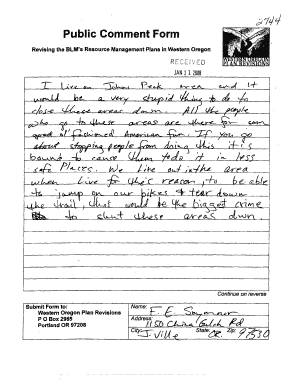 2744
Public Comment Form
Revising the BLM's Resource Management Plans in Western Oregon
WESTERN OREGON
PLAN REVISIONS
RECEIVED
JAN 11 2008
I live on Johns Peak area and it
would be a very stupid thing to do to
close these areas down. All the people
who go to these areas are there for
good ol' fashioned American fun. If you go
about stopping people from doing this it is
bound to cause them to do it in less
safe places. We live out in the area
when live for this reason, to be able
to jump on our bikes & tear down
the trail, that would be the biggest crime
to shut these areas down.
Continue on reverse
Submit Form to:
Western Oregon Plan Revisions
P O Box 2965
Portland OR 97208
Name: F. E. Seymour
Address: 1150 China Gulch Rd
City: J.Ville State: OR. Zip: 97530